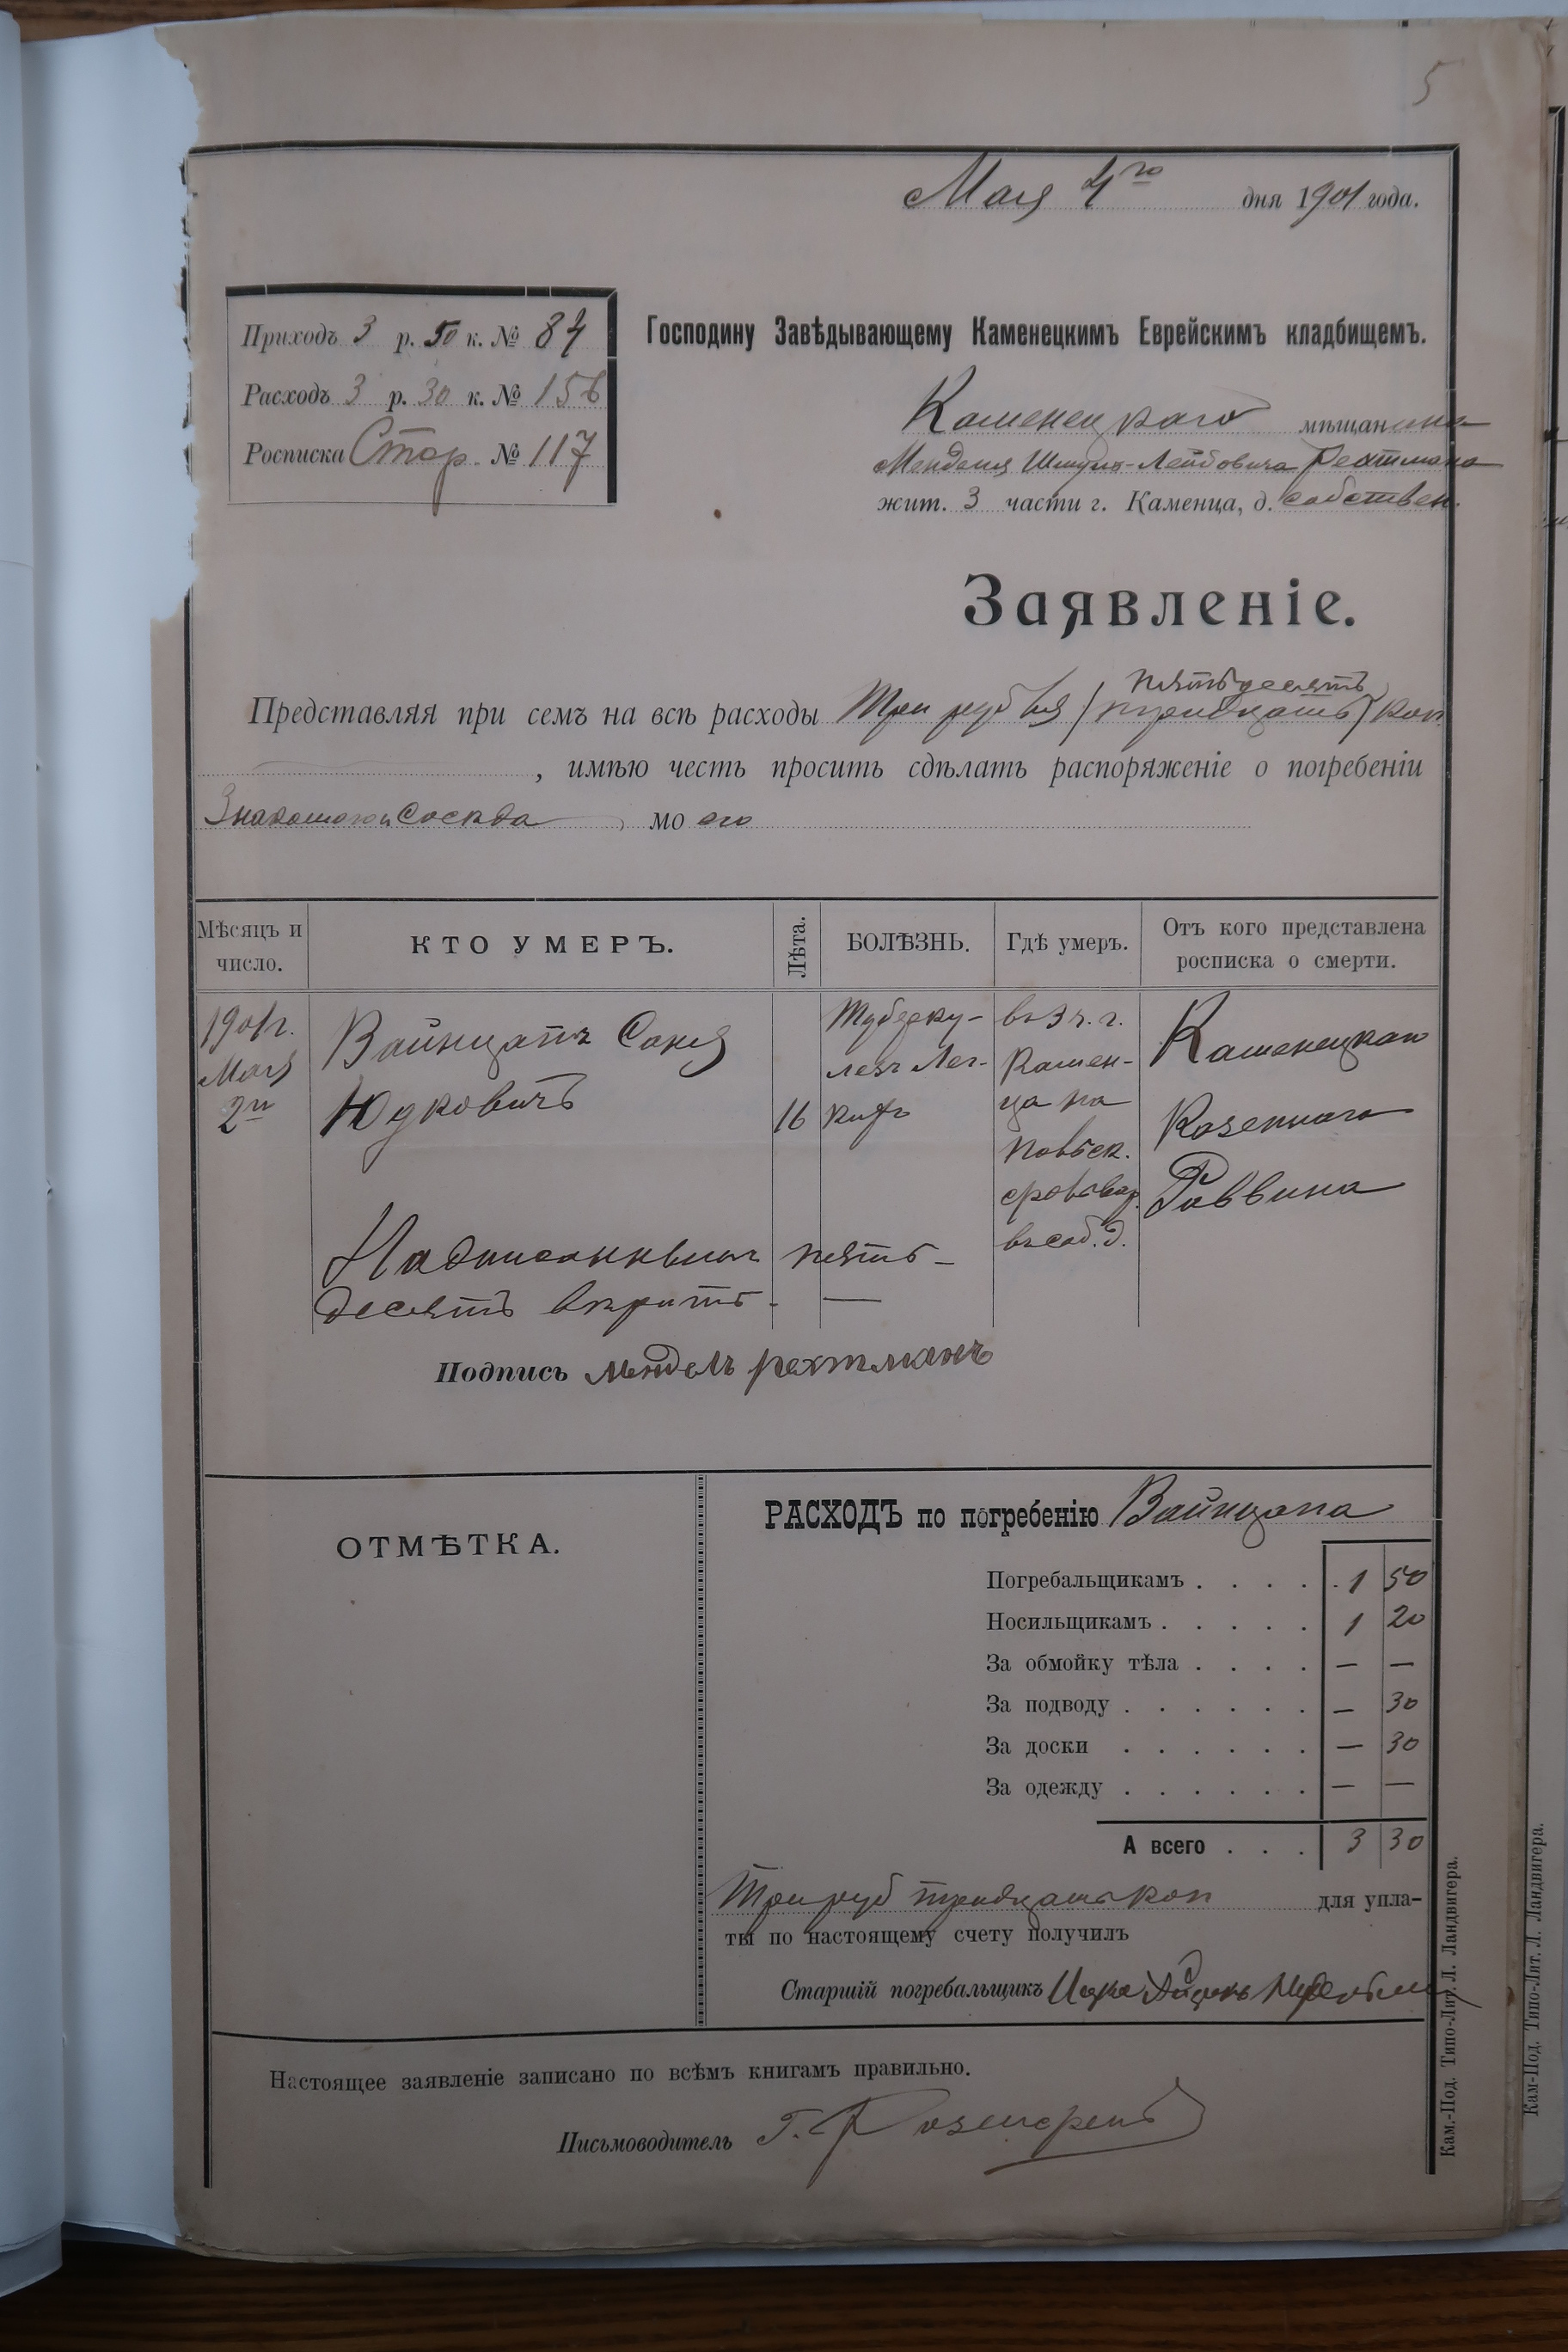 5
Мая 4го дня 1901 года.
Приходъ 3 р. 50 к. № 84
Расходъ 3 р. 30 к. № 156
Росписка Стар. № 117
Господину Завѣдывающему Каменецкимъ Еврейскимъ кладбищемъ.
Каменецкаго мѣщанина
Менделя Лейбовича Рехтмана
жит. 3 части г. Каменца, д. собствен.
Заявленіе.
пятьдесятъ
Представляя при семъ на всѣ расходы Три рубля (тридцать) коп
, имѣю честь просить сдѣлать распоряженіе о погребеніи
Знакомого и Соседа мо его
Мѣсяцъ и число.
КТО УМЕРЪ.
Лѣта.
БОЛѢЗНЬ.
Гдѣ умеръ.
Отъ кого представлена росписка о смерти.
1901 г.
Мая
2го
Вайнцапъ Саня
Юдковичъ
16
Туберку-
лезъ Лег-
кихъ
въ 3 ч. г.
Камен-
ца на
въ соб. д.
Каменецкаго
Казеннаго
Раввина
Надписаннымъ пять-
десятъ вкрить. —
Подпись Мендель рехтманъ
ОТМѢТКА.
РАСХОДЪ по погребенію Вайнцапа
Погребальщикамъ . . . . . 1 50
Носильщикамъ . . . . . 1 20
За обмойку тѣла . . . . — —
За подводу . . . . . . — 30
За доски . . . . . . — 30
За одежду . . . . . . — —
А всего . . . 3 30
Три руб тридцать коп для упла-
ты по настоящему счету получилъ
Старшій погребальщикъ
Настоящее заявленіе записано по всѣмъ книгамъ правильно.
Письмоводитель Г.
Кам.-Под. Типо-Лит. Л. Ландвигера.
Кам-Под. Типо-Лит. Л. Ландвигера.